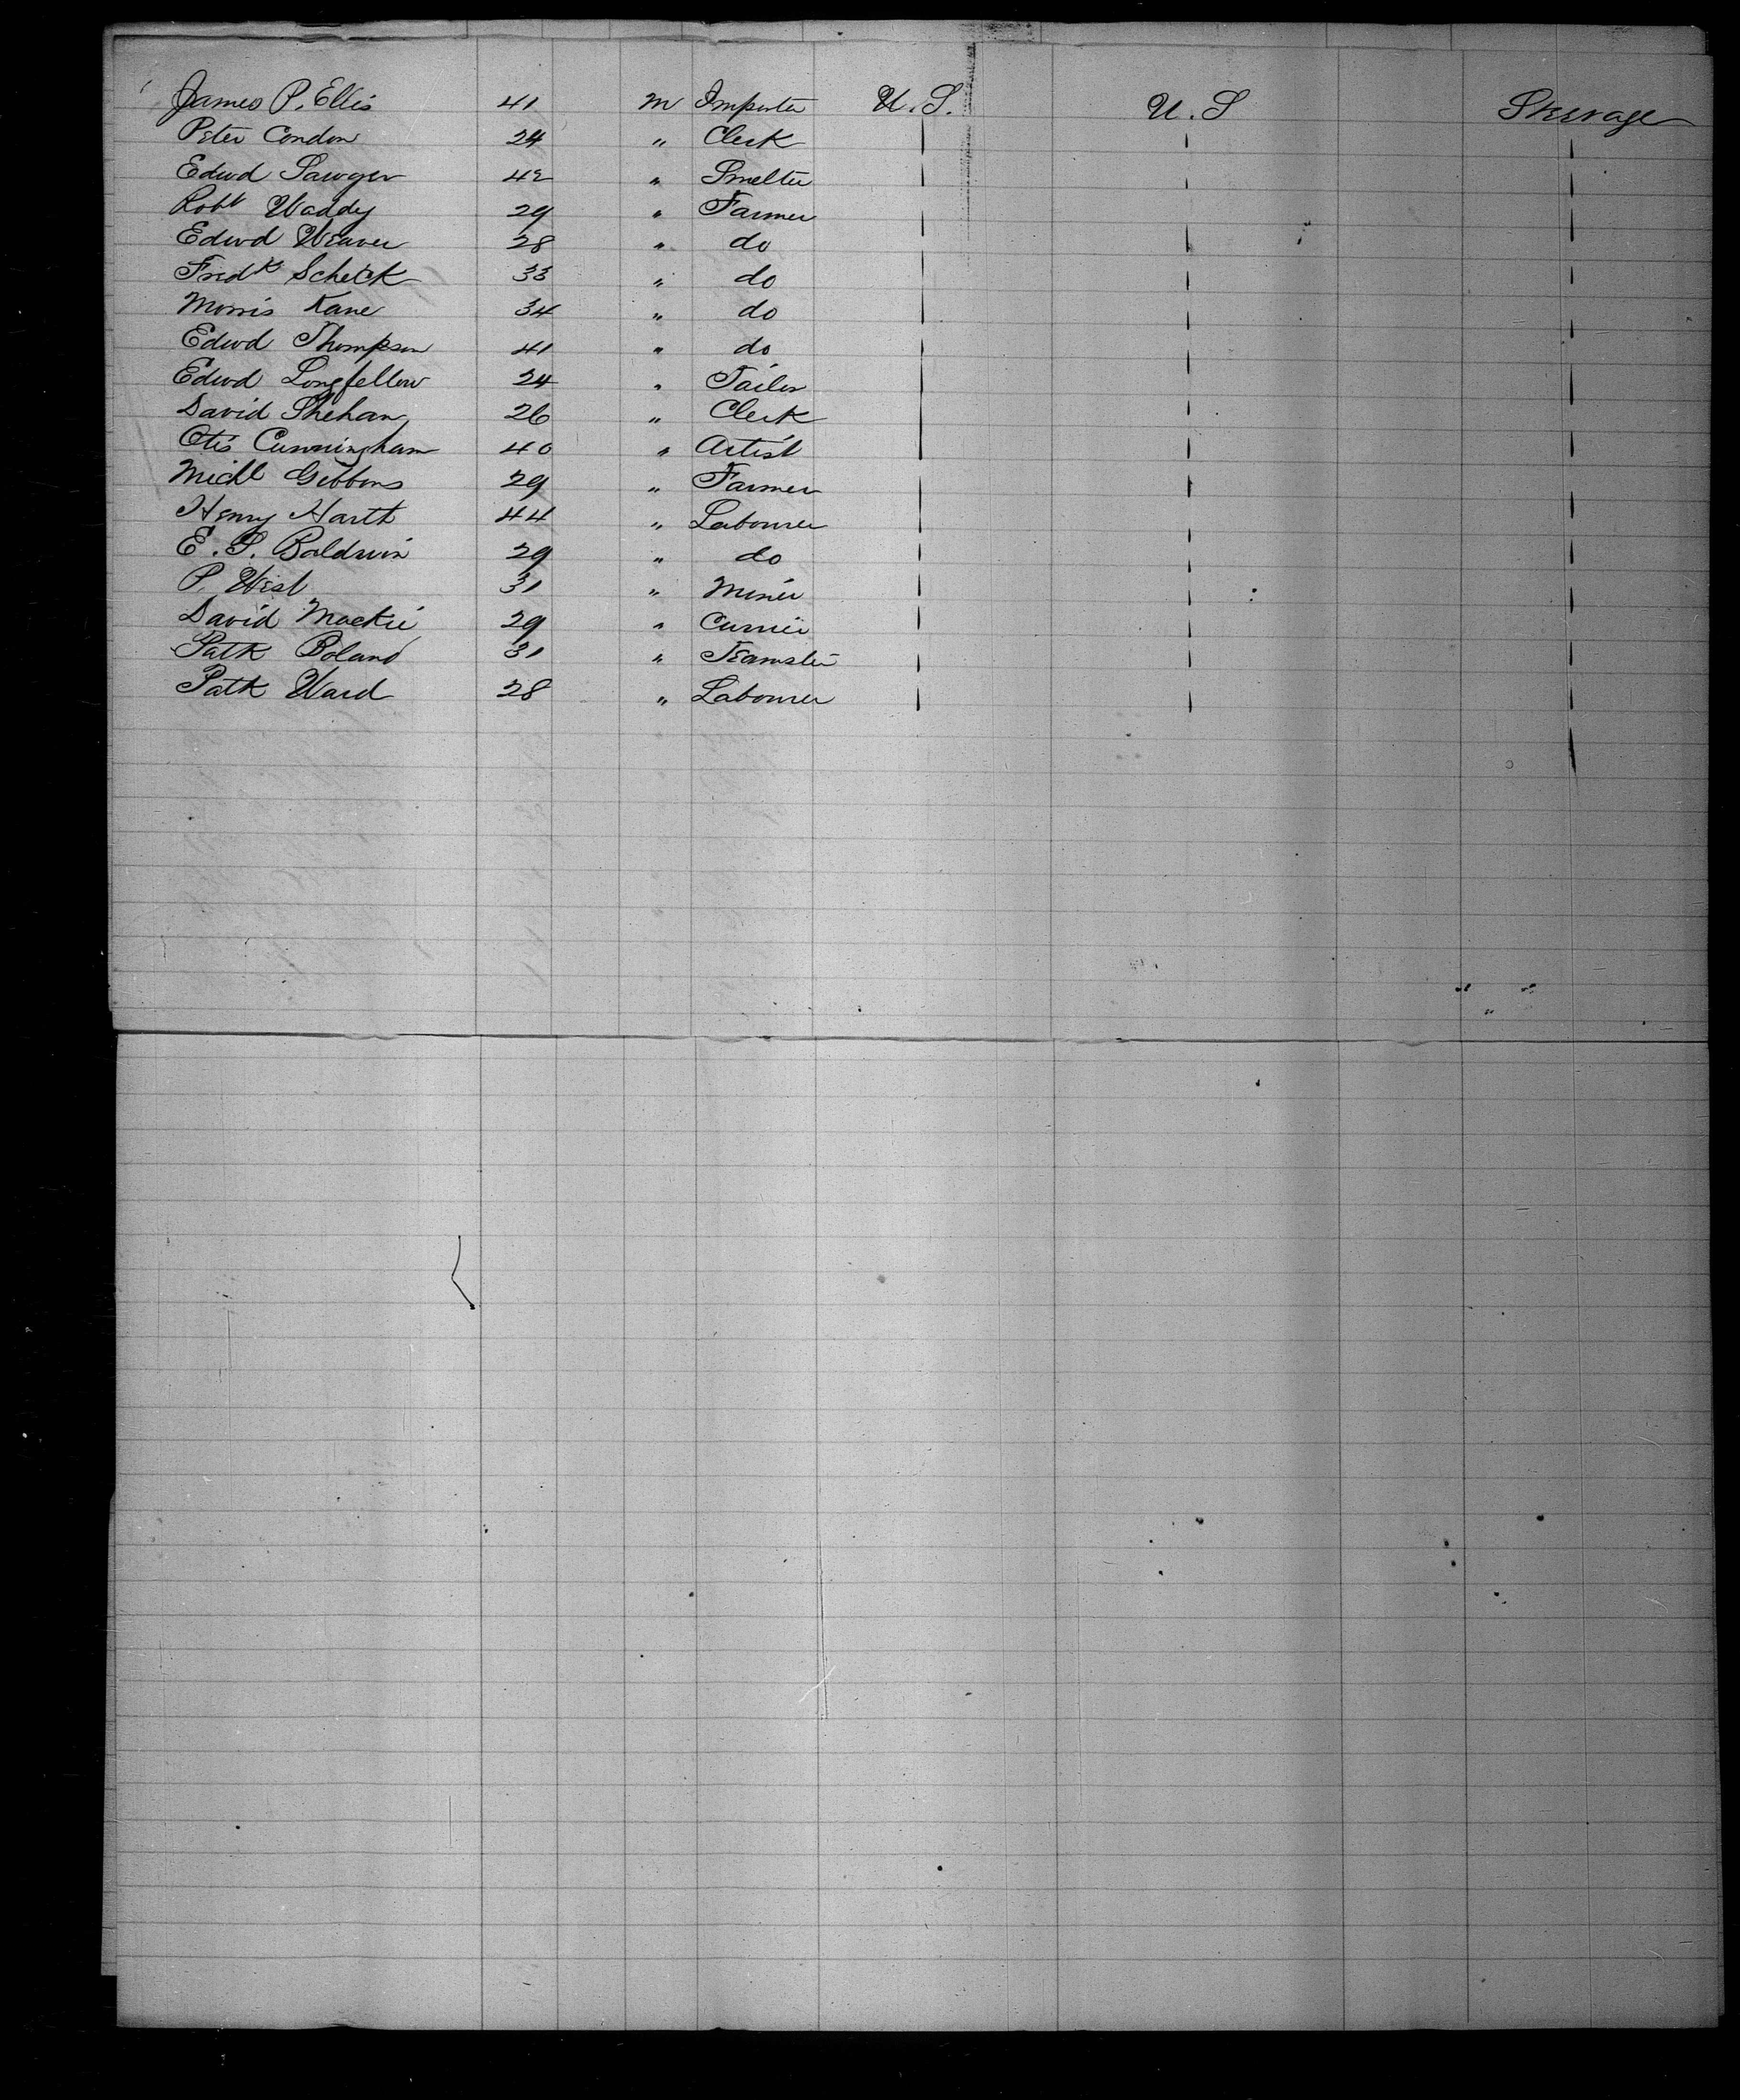 James P. Ellis 41 M Importer U.S. U.S Steerage
Peter Condon 24 " Clerk
Edwd Sawyer 42 " Smelter
Robt Waddy 29 " Farmer
Edwd Weaver 28 " do
Fredk Scheck 33 " do
Morris Kane 34 " do
Edwd Thompson 41 " do
Edwd Longfellow 24 " Tailor
David Shehan 26 " Clerk
Otis Cunningham 40 " Artist
Michl Gibbons 29 " Farmer
Henry Harth 44 " Labourer
E. S. Baldwin 29 " do
P. West 31 " Miner
David Mackie 29 " Currier
Patk Boland 31 " Teamster
Patk Ward 28 " Labourer